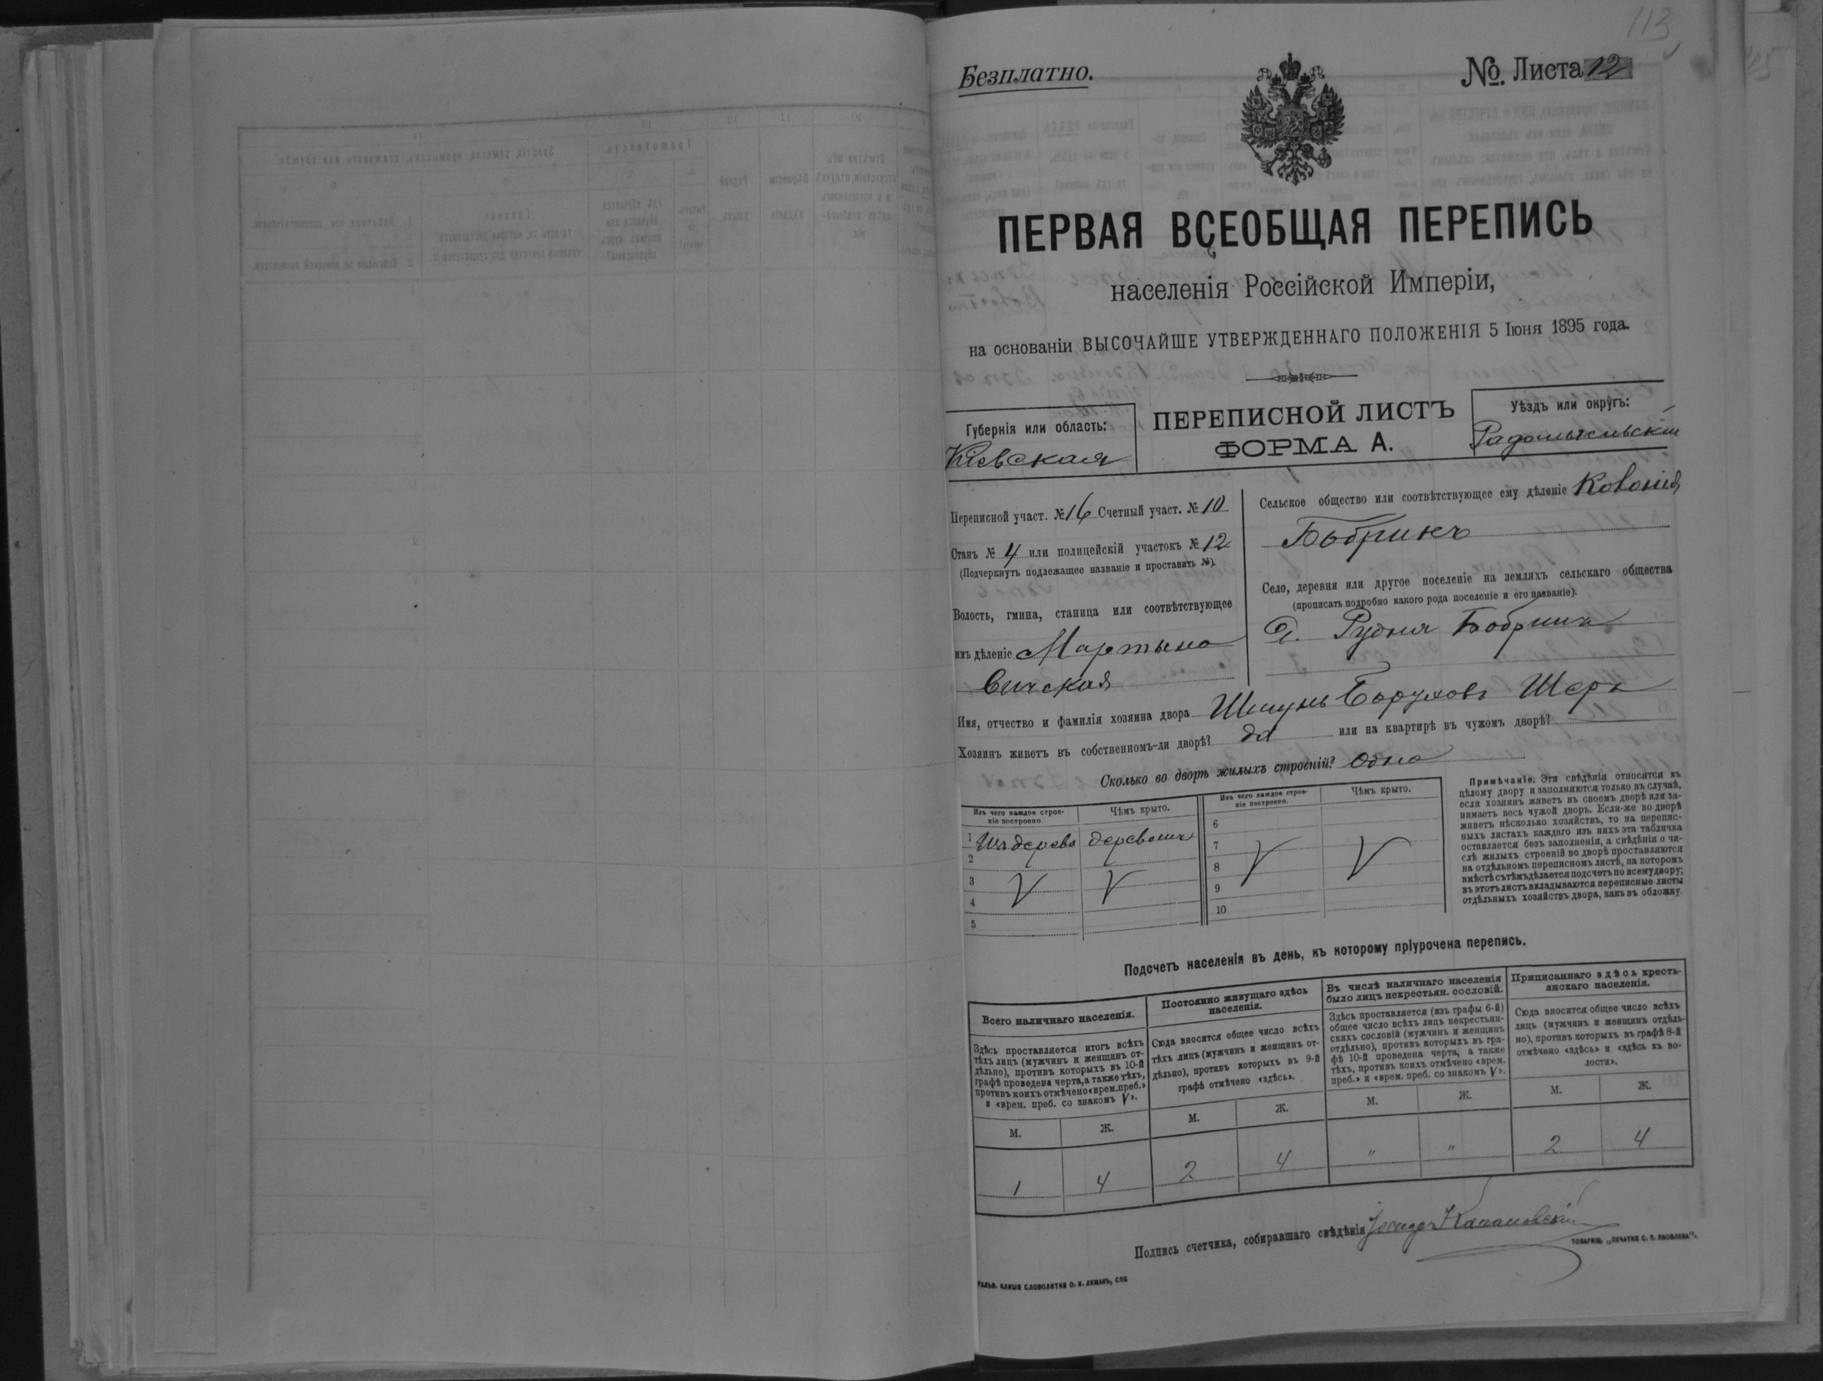 113
Безплатно.
№ Листа 12
ПЕРВАЯ ВСЕОБЩАЯ ПЕРЕПИСЬ
населенія Россійской Имперіи,
на основаніи ВЫСОЧАЙШЕ УТВЕРЖДЕННАГО ПОЛОЖЕНІЯ 5 Іюня 1895 года.
Губернія или область:
Кіевская
ПЕРЕПИСНОЙ ЛИСТЪ
ФОРМА А.
Уѣздъ или округъ:
Радомысльскій
Переписной участ. № 16 Счетный участ. № 10
Станъ № 4 или полицейскій участокъ № 12
(Подчеркнуть подлежащее названіе и проставить №).
Волость, гмина, станица или соотвѣтствующее
имъ дѣленіе Мартыно
вичская
Сельское общество или соотвѣтствующее ему дѣленіе Колонія
Бобрикъ
Село, деревня или другое поселеніе на земляхъ сельскаго общества
(прописать подробно какого рода поселеніе и его названіе).
д. Рудня Бобрика
Имя, отчество и фамилія хозяина двора Боруховъ Шеръ
Хозяинъ живетъ въ собственномъ-ли дворѣ? да или на квартирѣ въ чужомъ дворѣ?
Сколько во дворѣ жилыхъ строеній? Одно
Изъ чего каждое строе-
ніе построено.
Чѣмъ крыто.
Изъ чего каждое строе-
ніе построено.
Чѣмъ крыто.
1 Издерева деревомъ
2
3
4
5
6
7
8
9
10
Примѣчаніе. Эти свѣдѣнія относятся къ
цѣлому двору и заполняются только въ случаѣ,
если хозяинъ живетъ въ своемъ дворѣ или за-
нимаетъ весь чужой дворъ. Если-же во дворѣ
живетъ нѣсколько хозяйствъ, то на перепис-
ныхъ листахъ каждаго изъ нихъ эта табличка
оставляется безъ заполненія, а свѣдѣнія о чи-
слѣ жилыхъ строеній во дворѣ проставляются
на отдѣльномъ переписномъ листѣ, на которомъ
вмѣстѣ съ тѣмъ дѣлается подсчетъ по всему двору;
въ этотъ листъ вкладываются переписные листы
отдѣльныхъ хозяйствъ двора, какъ въ обложку.
Подсчетъ населенія въ день, къ которому пріурочена перепись.
Всего наличнаго населенія.
Здѣсь проставляется итогъ всѣхъ
тѣхъ лицъ (мужчинъ и женщинъ от-
дѣльно), противъ которыхъ въ 10-й
графѣ проведена черта, а также тѣхъ,
противъ коихъ отмѣчено «врем. преб.»
и «врем. преб. со знакомъ V».
Постоянно живущаго здѣсь
населенія.
Сюда вносится общее число всѣхъ
тѣхъ лицъ (мужчинъ и женщинъ от-
дѣльно), противъ которыхъ въ 9-й
графѣ отмѣчено «здѣсь».
Въ числѣ наличнаго населенія
было лицъ некрестьян. сословій.
Здѣсь проставляется (изъ графы 6-й)
общее число всѣхъ лицъ некрестьян-
скихъ сословій (мужчинъ и женщинъ
отдѣльно), противъ которыхъ въ гра-
фѣ 10-й проведена черта, а также
тѣхъ, противъ коихъ отмѣчено «врем.
преб.» и «врем. преб. со знакомъ V».
Приписаннаго здѣсь кресть-
янскаго населенія.
Сюда вносится общее число всѣхъ
лицъ (мужчинъ и женщинъ отдѣль-
но), противъ которыхъ въ графѣ 8-й
отмѣчено «здѣсь» и «здѣсь въ во-
лости».
М. Ж. М. Ж. М. Ж. М. Ж.
1 4 2 4 " " 2 4
Подпись счетчика, собиравшаго свѣдѣнія
ГАЛЬВ. КЛИШЕ СЛОВОЛИТНИ О. И. ЛЕМАНЪ, СПБ
ТОВАРИЩ. „ПЕЧАТНЯ С. П. ЯКОВЛЕВА".